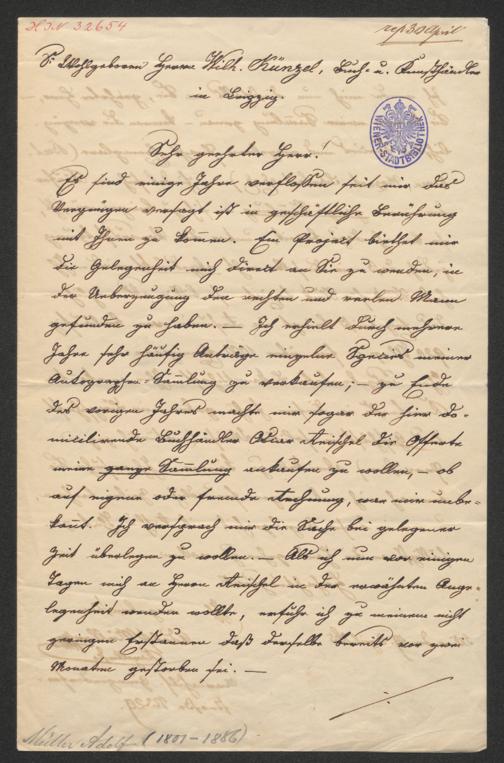 HIN 32654
rep 30 April
Sr Wohlgeboren Herrn Wilh. Künzel, Buch- u. Kunsthändler
in Leipzig.
WIENER STADTBIBLIOTHEK
Sehr geehrter Herr!
Es sind einige Jahre verflossen seit mir das
Vergnügen versagt ist in geschäftliche Berührung
mit Ihnen zu kommen. Ein Projekt biethet mir
die Gelegenheit mich direkt an Sie zu wenden, in
der Ueberzeugung den rechten und reellen Mann
gefunden zu haben. — Ich erhielt durch mehrere
Jahre sehr häufig Anträge einzelne meiner
Autographen-Samlung zu verkaufen; — zu Ende
des vorigen Jahres machte mir sogar der hier do-
micilirende Buchhändler Oscar die Offerte
meine ganze Sammlung ankaufen zu wollen, — ob
auf eigene oder fremde Rechnung, war mir unbe-
kant. Ich versprach mir die Sache bei gelegener
Zeit überlegen zu wollen. — Als ich nun vor einigen
Tagen mich an Herrn in der erwähnten Ange-
legenheit wenden wollte, erfuhr ich zu meinem nicht
geringen Erstaunen daß derselbe bereits vor zwei
Monaten gestorben sei. —
Müller Adolf (1801-1886)